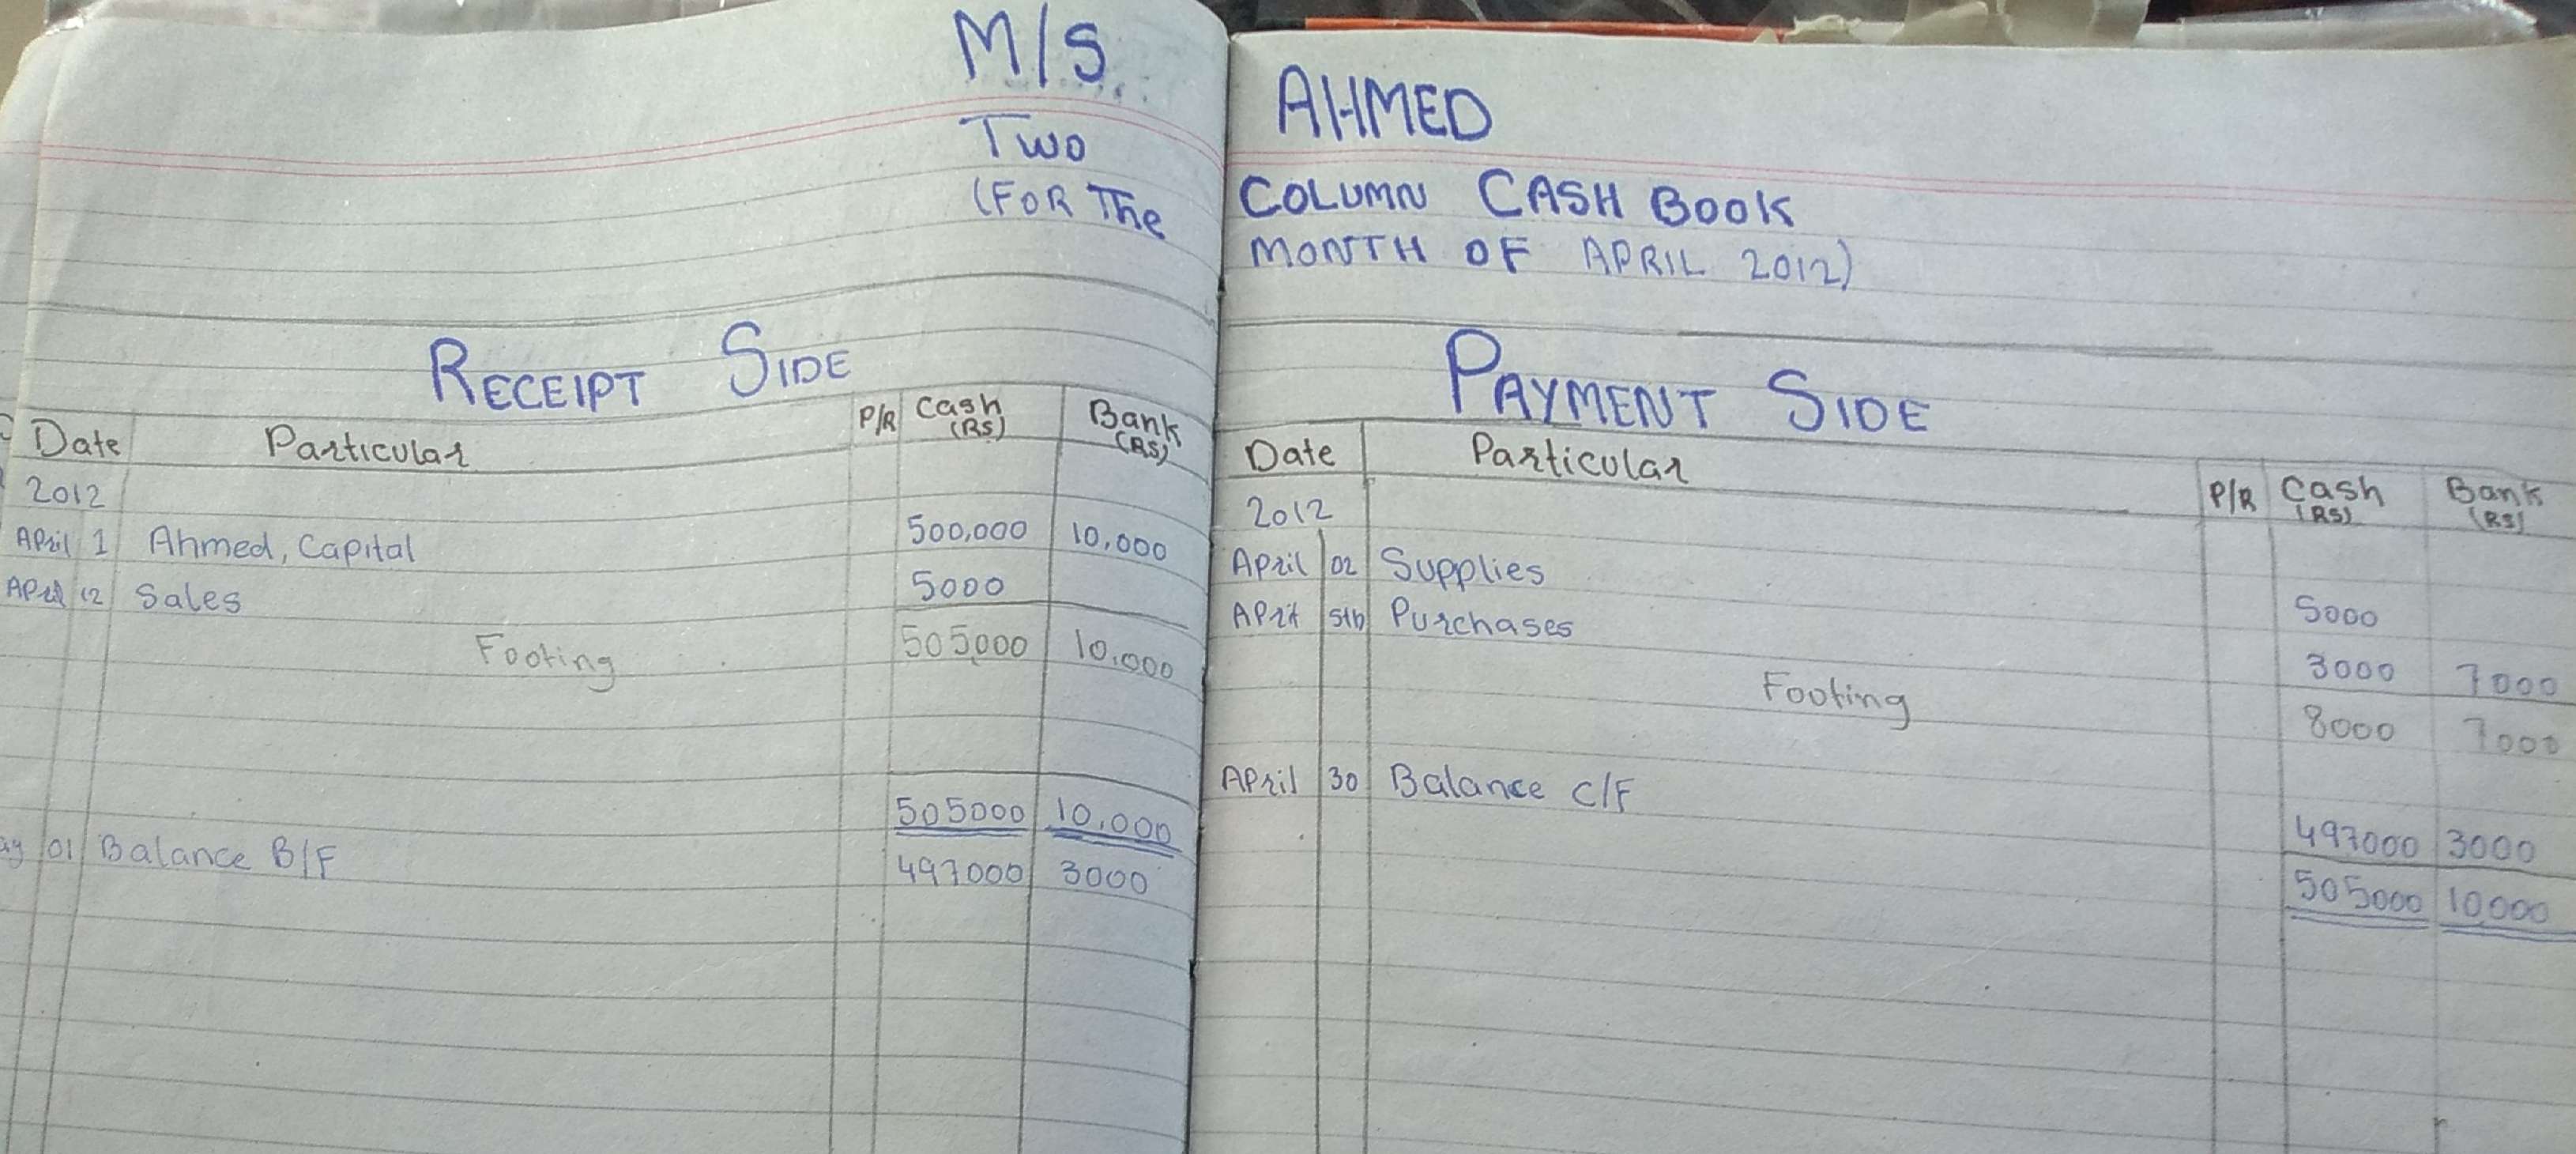 M/S AHMED
TWO COLUMN CASH BOOK
(FOR The MONTH OF APRIL 2012)
RECEIPT SIDE
Date Particular P/R Cash (RS) Bank (RS)
2012
April 1 Ahmed, Capital 500,000 10,000
April 12 Sales 5000
Footing 505,000 10,000
505000 10,000
01 Balance B/F 497000 3000
PAYMENT SIDE
Date Particular P/R Cash (RS) Bank (RS)
2012
April 02 Supplies 5000
April 5th Purchases 3000 7000
Footing 8000 7000
April 30 Balance C/F 497000 3000
505000 10,000